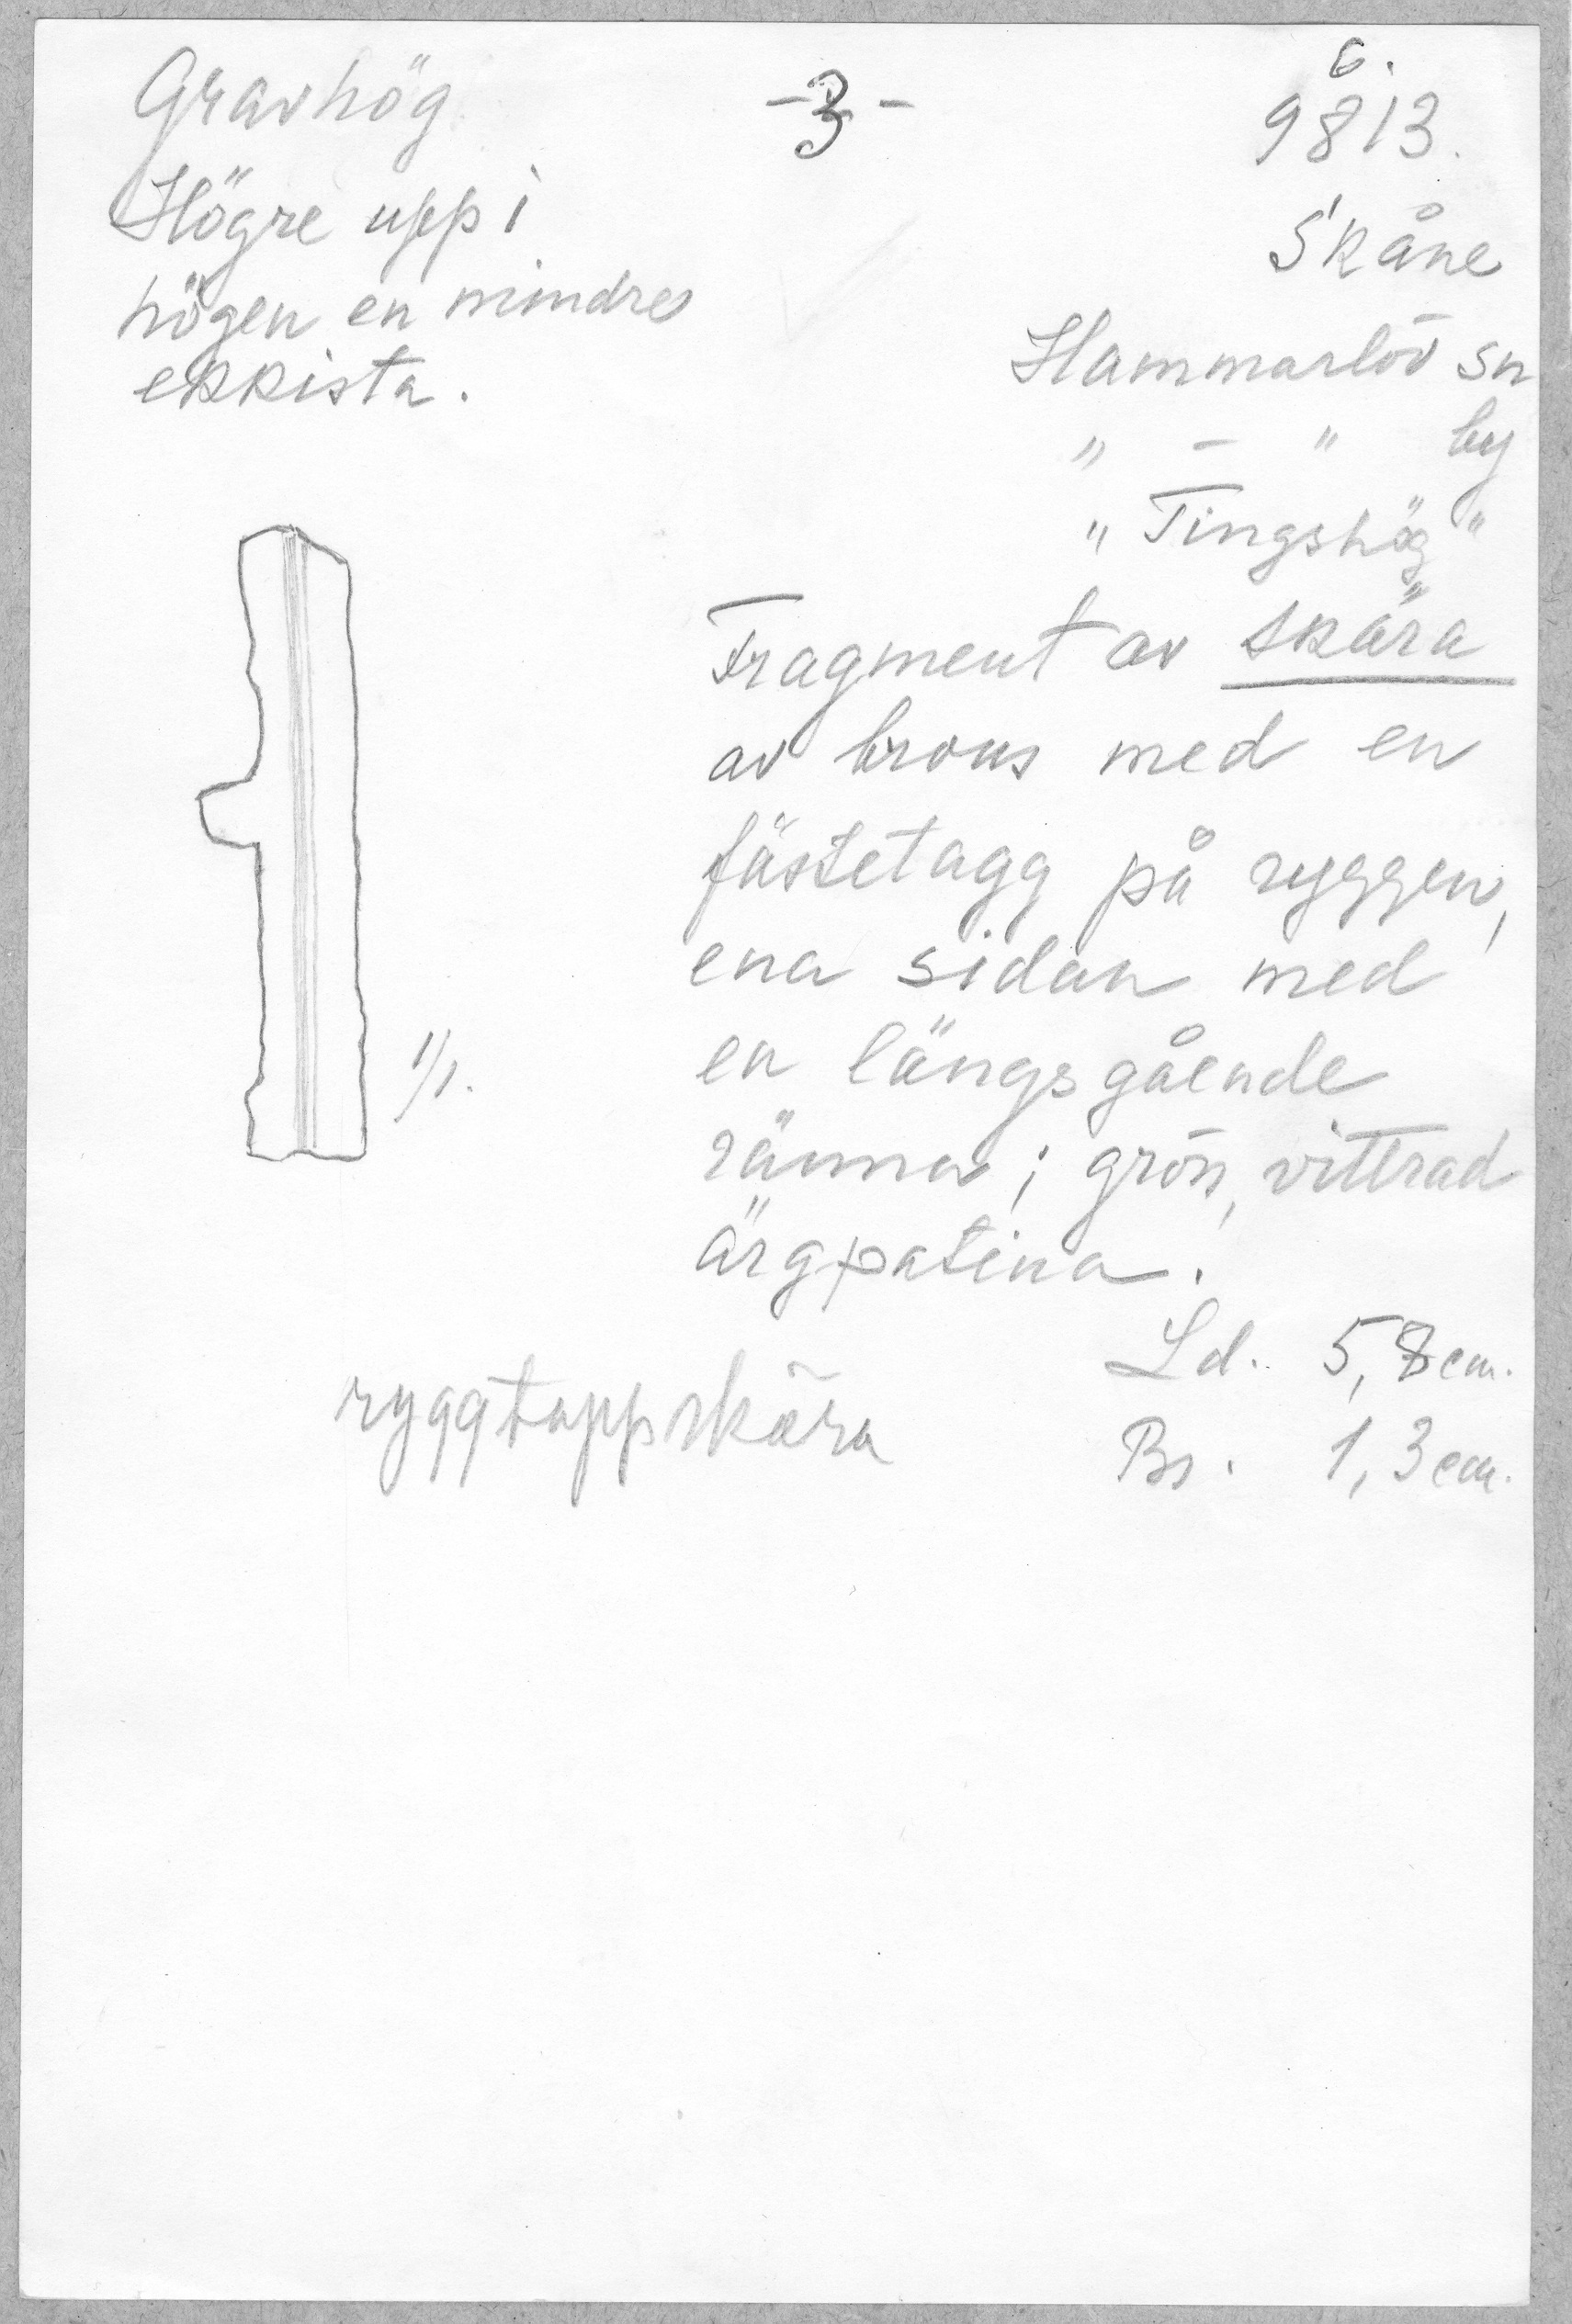 Gravhög
Högre upp i
högen en mindre
ekkista.
-3-
6.
9813.
Skåne
Hammarlöv sn
" - " by
"Tingshög"
Fragment av skära
av brons med en
fästetagg på ryggen,
ena sidan med
en längsgående
ränna; grön, vittrad
ärgpatina.
1/1.
Ld. 5,8 cm.
Br. 1,3 cm.
ryggtappskära